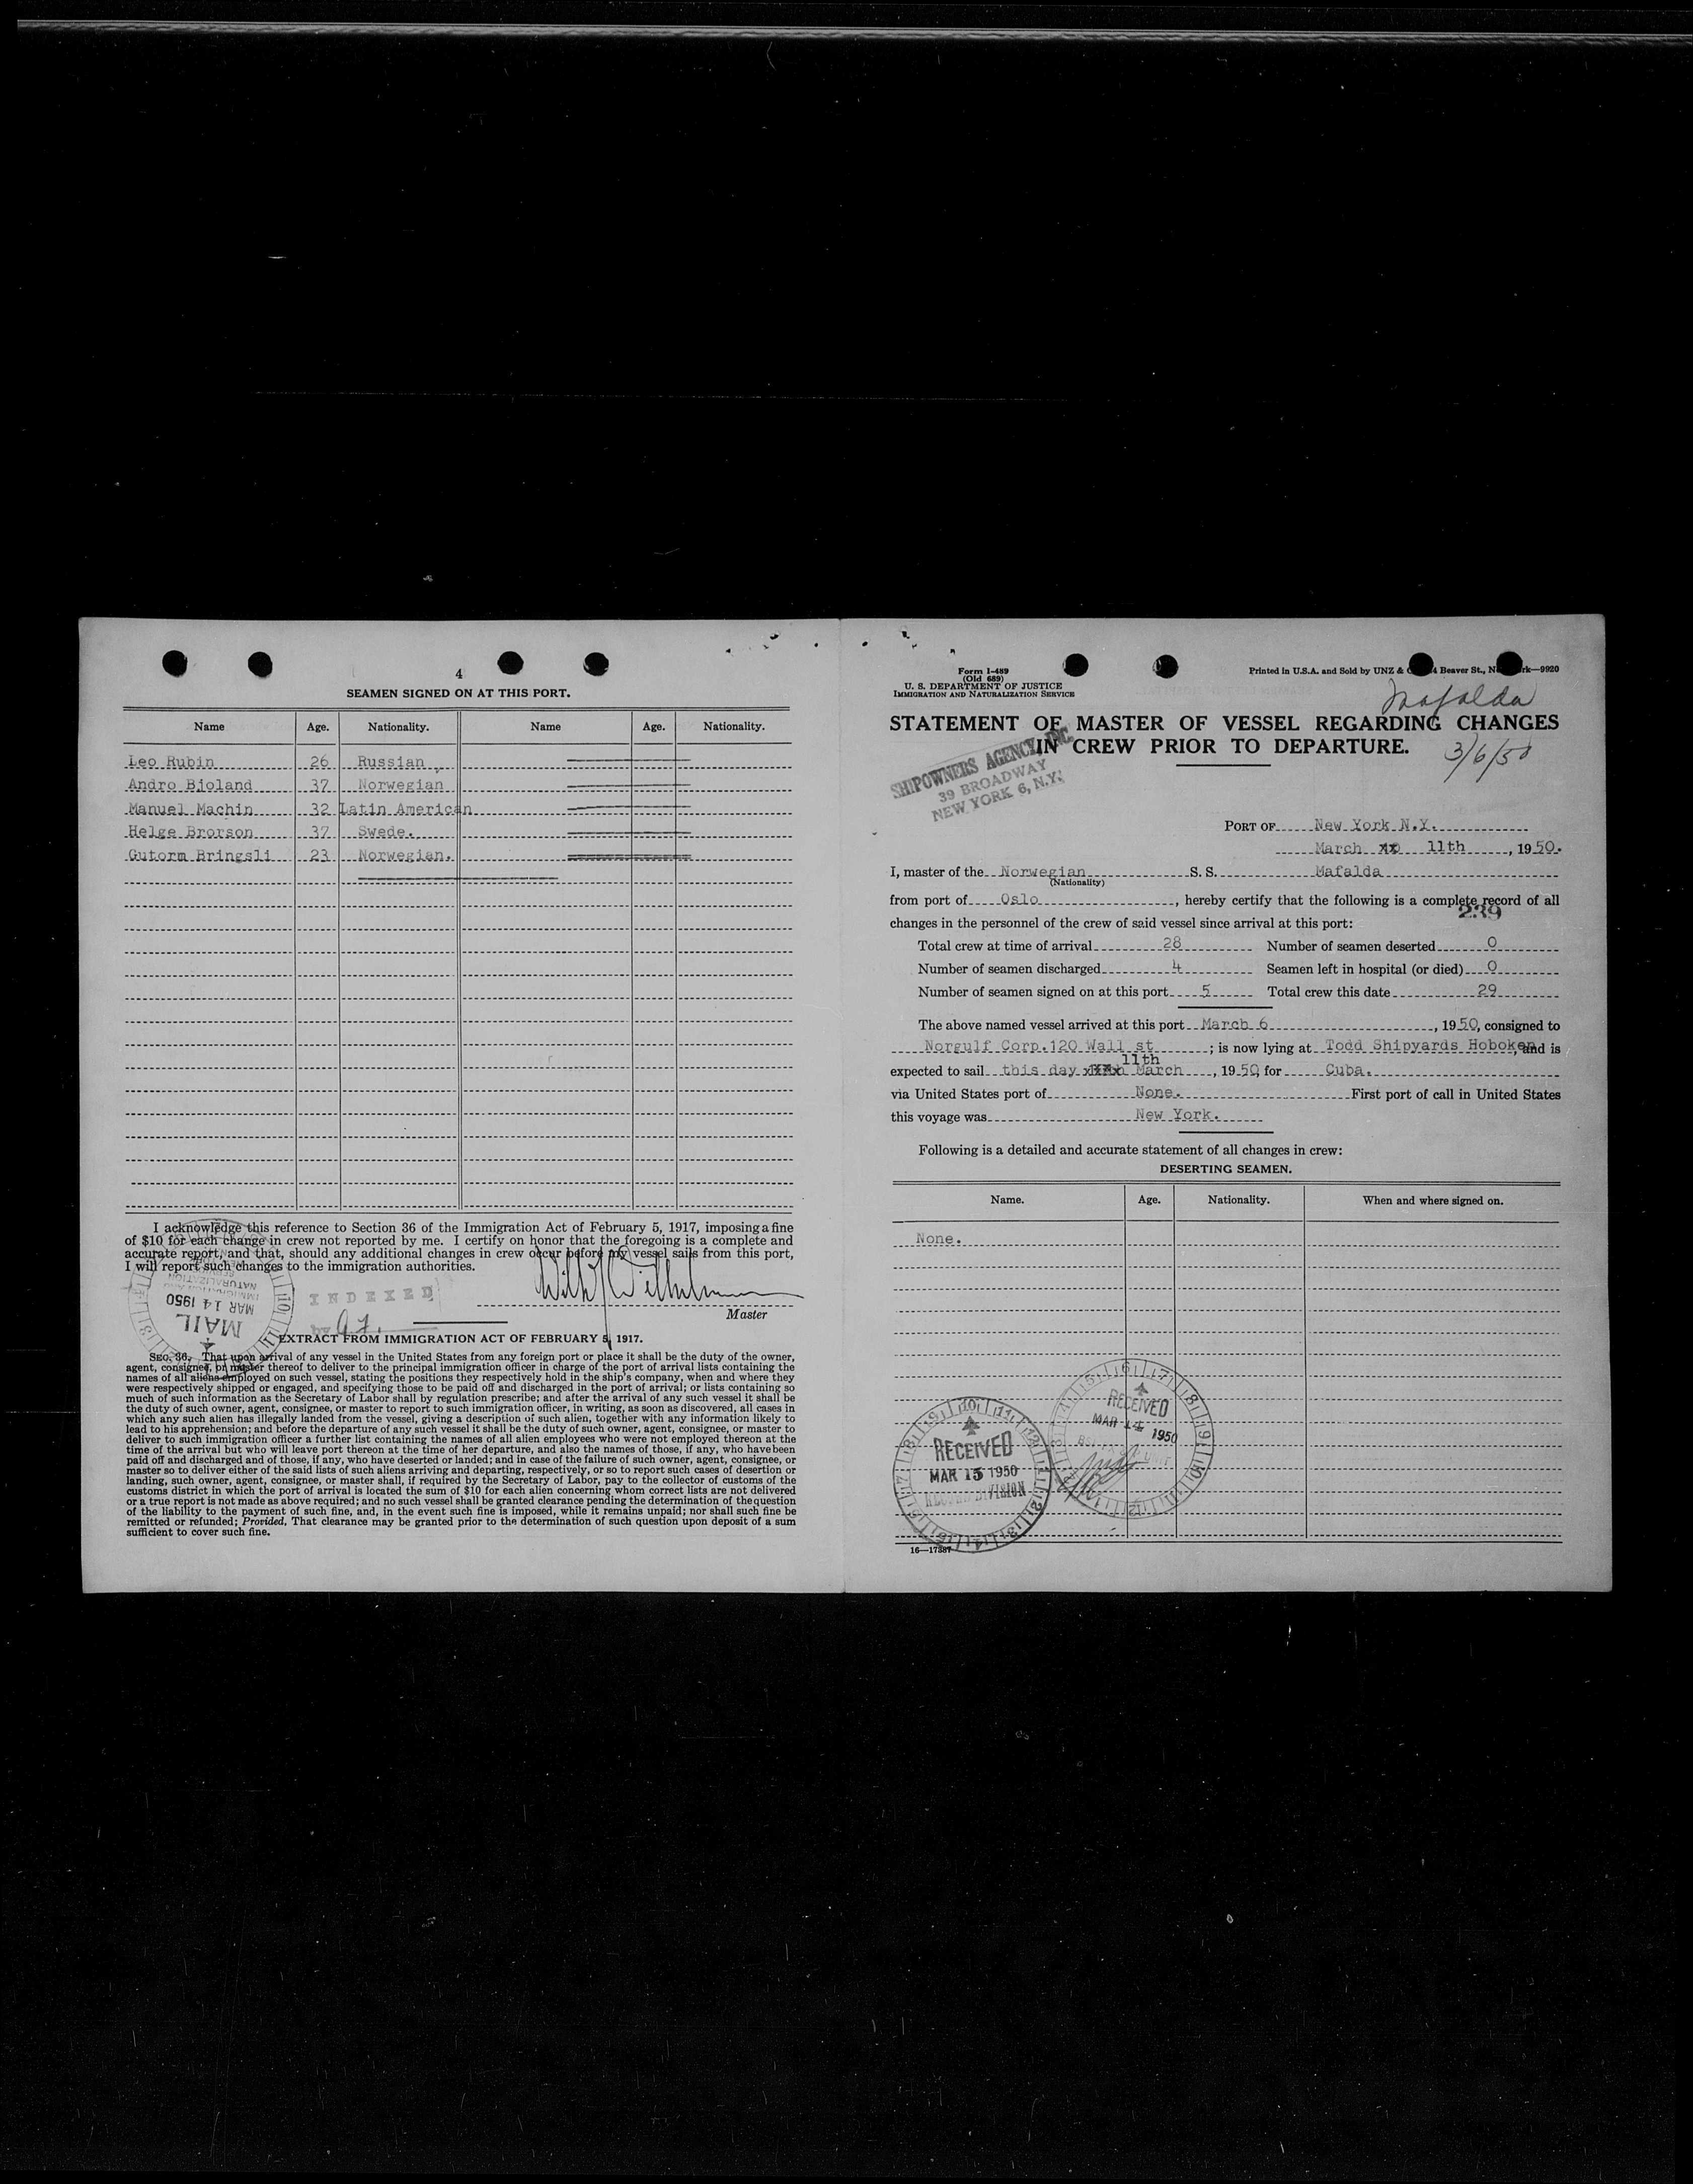 4
SEAMEN SIGNED ON AT THIS PORT.
Name Age. Nationality. Name Age. Nationality.
Leo Rubin 26 Russian
Andro Bioland 37 Norwegian
Manuel Machin 32 Latin American
Helge Brorson 37 Swede.
Gutorm Bringsli 23 Norwegian.
I acknowledge this reference to Section 36 of the Immigration Act of February 5, 1917, imposing a fine
of $10 for each change in crew not reported by me. I certify on honor that the foregoing is a complete and
accurate report, and that, should any additional changes in crew occur before my vessel sails from this port,
I will report such changes to the immigration authorities.
MAIL
MAR 14 1950
IMMIGRATION AND
NATURALIZATION
INDEXED
by
Master
EXTRACT FROM IMMIGRATION ACT OF FEBRUARY 5, 1917.
SEC. 36. That upon arrival of any vessel in the United States from any foreign port or place it shall be the duty of the owner,
agent, consignee, or master thereof to deliver to the principal immigration officer in charge of the port of arrival lists containing the
names of all aliens employed on such vessel, stating the positions they respectively hold in the ship's company, when and where they
were respectively shipped or engaged, and specifying those to be paid off and discharged in the port of arrival; or lists containing so
much of such information as the Secretary of Labor shall by regulation prescribe; and after the arrival of any such vessel it shall be
the duty of such owner, agent, consignee, or master to report to such immigration officer, in writing, as soon as discovered, all cases in
which any such alien has illegally landed from the vessel, giving a description of such alien, together with any information likely to
lead to his apprehension; and before the departure of any such vessel it shall be the duty of such owner, agent, consignee, or master to
deliver to such immigration officer a further list containing the names of all alien employees who were not employed thereon at the
time of the arrival but who will leave port thereon at the time of her departure, and also the names of those, if any, who have been
paid off and discharged and of those, if any, who have deserted or landed; and in case of the failure of such owner, agent, consignee, or
master so to deliver either of the said lists of such aliens arriving and departing, respectively, or so to report such cases of desertion or
landing, such owner, agent, consignee, or master shall, if required by the Secretary of Labor, pay to the collector of customs of the
customs district in which the port of arrival is located the sum of $10 for each alien concerning whom correct lists are not delivered
or a true report is not made as above required; and no such vessel shall be granted clearance pending the determination of the question
of the liability to the payment of such fine, and, in the event such fine is imposed, while it remains unpaid; nor shall such fine be
remitted or refunded; Provided, That clearance may be granted prior to the determination of such question upon deposit of a sum
sufficient to cover such fine.
Form I-489
(Old 689)
U. S. DEPARTMENT OF JUSTICE
IMMIGRATION AND NATURALIZATION SERVICE
Printed in U.S.A. and Sold by UNZ & Beaver St., 9920
Mafalda
STATEMENT OF MASTER OF VESSEL REGARDING CHANGES
IN CREW PRIOR TO DEPARTURE.
3/6/50
SHIPOWNERS AGENCY, INC.
39 BROADWAY
NEW YORK 6, N.Y.
PORT OF New York N.Y.
March 11th, 1950.
I, master of the Norwegian S. S. Mafalda
(Nationality)
from port of Oslo, hereby certify that the following is a complete record of all
239
changes in the personnel of the crew of said vessel since arrival at this port:
Total crew at time of arrival 28 Number of seamen deserted 0
Number of seamen discharged 4 Seamen left in hospital (or died) 0
Number of seamen signed on at this port 5 Total crew this date 29
The above named vessel arrived at this port March 6, 1950, consigned to
Norgulf Corp. 120 Wall st; is now lying at Todd Shipyards Hoboken, and is
11th
expected to sail this day March, 1950, for Cuba.
via United States port of None. First port of call in United States
this voyage was New York.
Following is a detailed and accurate statement of all changes in crew:
DESERTING SEAMEN.
Name. Age. Nationality. When and where signed on.
None.
RECEIVED
MAR 14 1950
RECEIVED
MAR 15 1950
DIVISION
16—17387